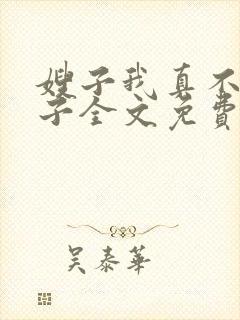 嫂子我真不
子全文免费
吴泰华